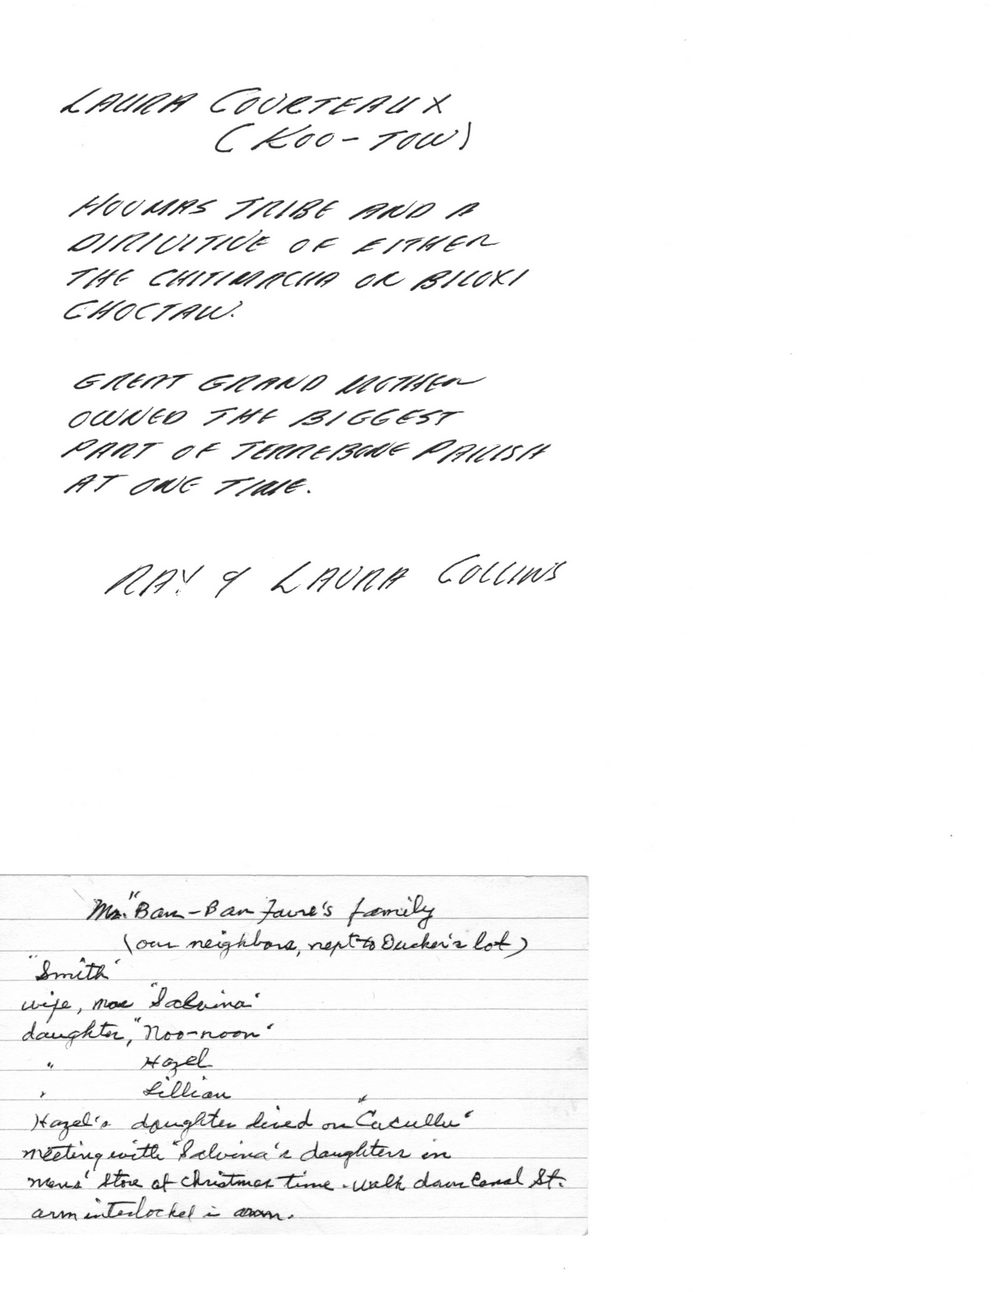 LAURA COURTEAUX
(KOO-TOW)
HOUMAS TRIBE AND A
DIRIVITIVE OF EITHER
THE CHITIMACHA OR BILOXI
CHOCTAW.
GREAT GRAND MOTHER
OWNED THE BIGGEST
PART OF TERREBONE PARISH
AT ONE TIME.
RAY & LAURA COLLINS
"Ban-Ban Faure's family
(our neighbors, next to Ducker's lot)
"Smith"
wife, "Salvina"
daughter, "Noo-noon"
" Hazel
" Lillian
Hazel's daughter lived on "Cucullu"
meeting with "Salvina's daughters in
mens' store at Christmas time. walk down Canal St.
arm interlocked in arm.